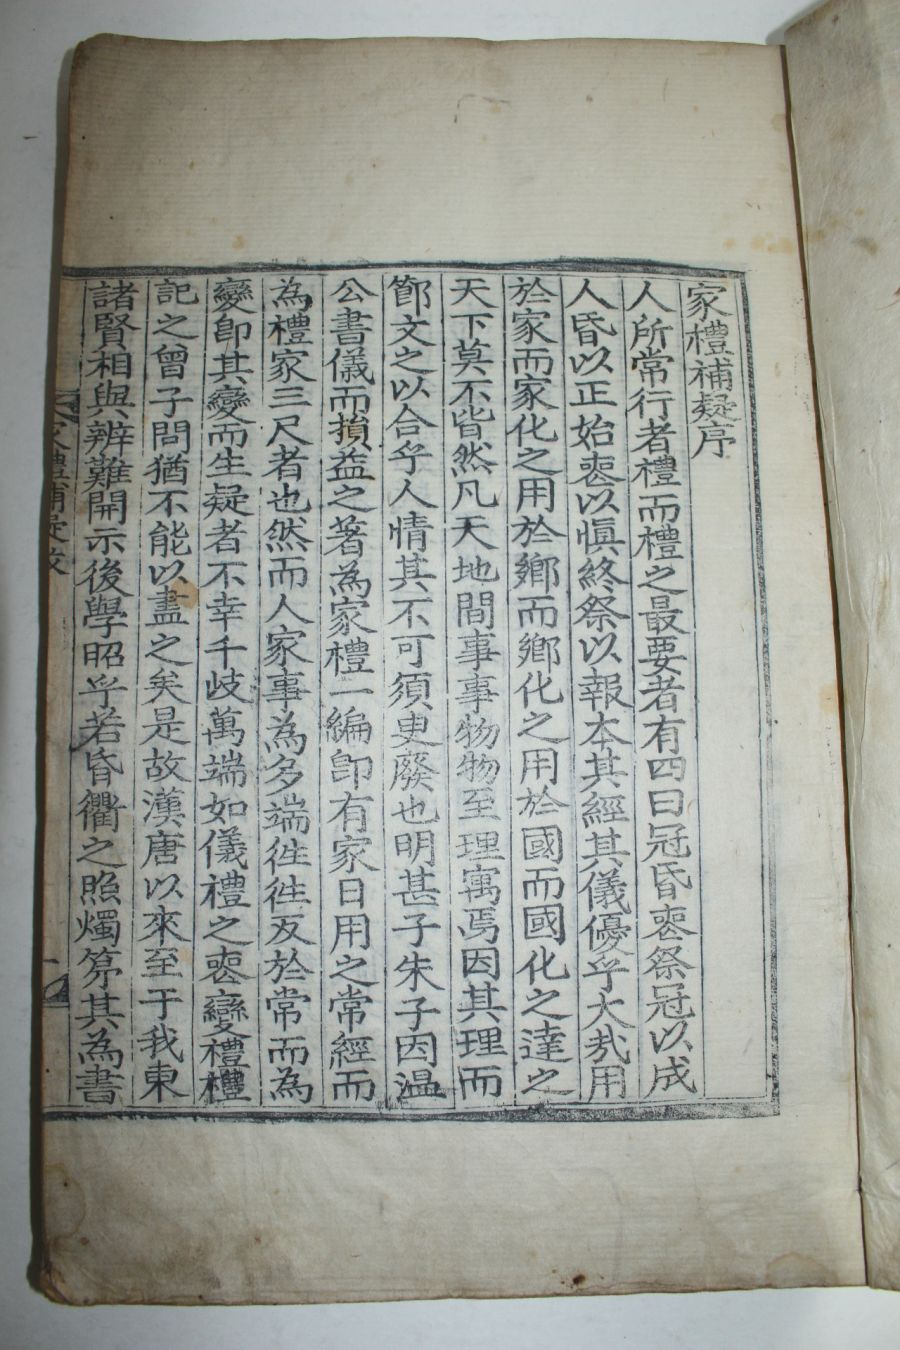 家禮補疑序
人所常行者禮而禮之最要者有四曰冠昏喪祭冠以成
人昏以正始喪以愼終祭以報本其經其儀優乎大㦲用
於家而家化之用於鄕而鄕化之用於國而國化之達之
天下莫不皆然凡天地間事事物物至理寓焉因其理而
節文之以合乎人情其不可須臾廢也明甚子朱子因温
公書儀而損益之著為家禮一編卽有家日用之常經而
為禮家三尺者也然而人家事為多端徃徃反於常而為
變卽其變而生疑者不幸千岐萬端如儀禮之喪變禮禮
記之曾子問猶不能以盡之矣是故漢唐以來至于我東
諸賢相與辨難開示後學昭乎若昏衢之照燭第其為書
家禮補疑序
一